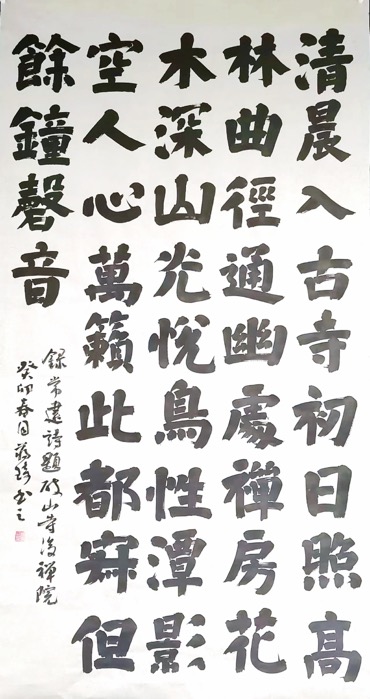 清晨入古寺初日照高
林曲徑通幽處禪房花
木深山光悅鳥性潭影
空人心萬籟此都寂但
餘鐘磬音
錄常建詩題破山寺後禪院
癸卯春月蔣琦书之